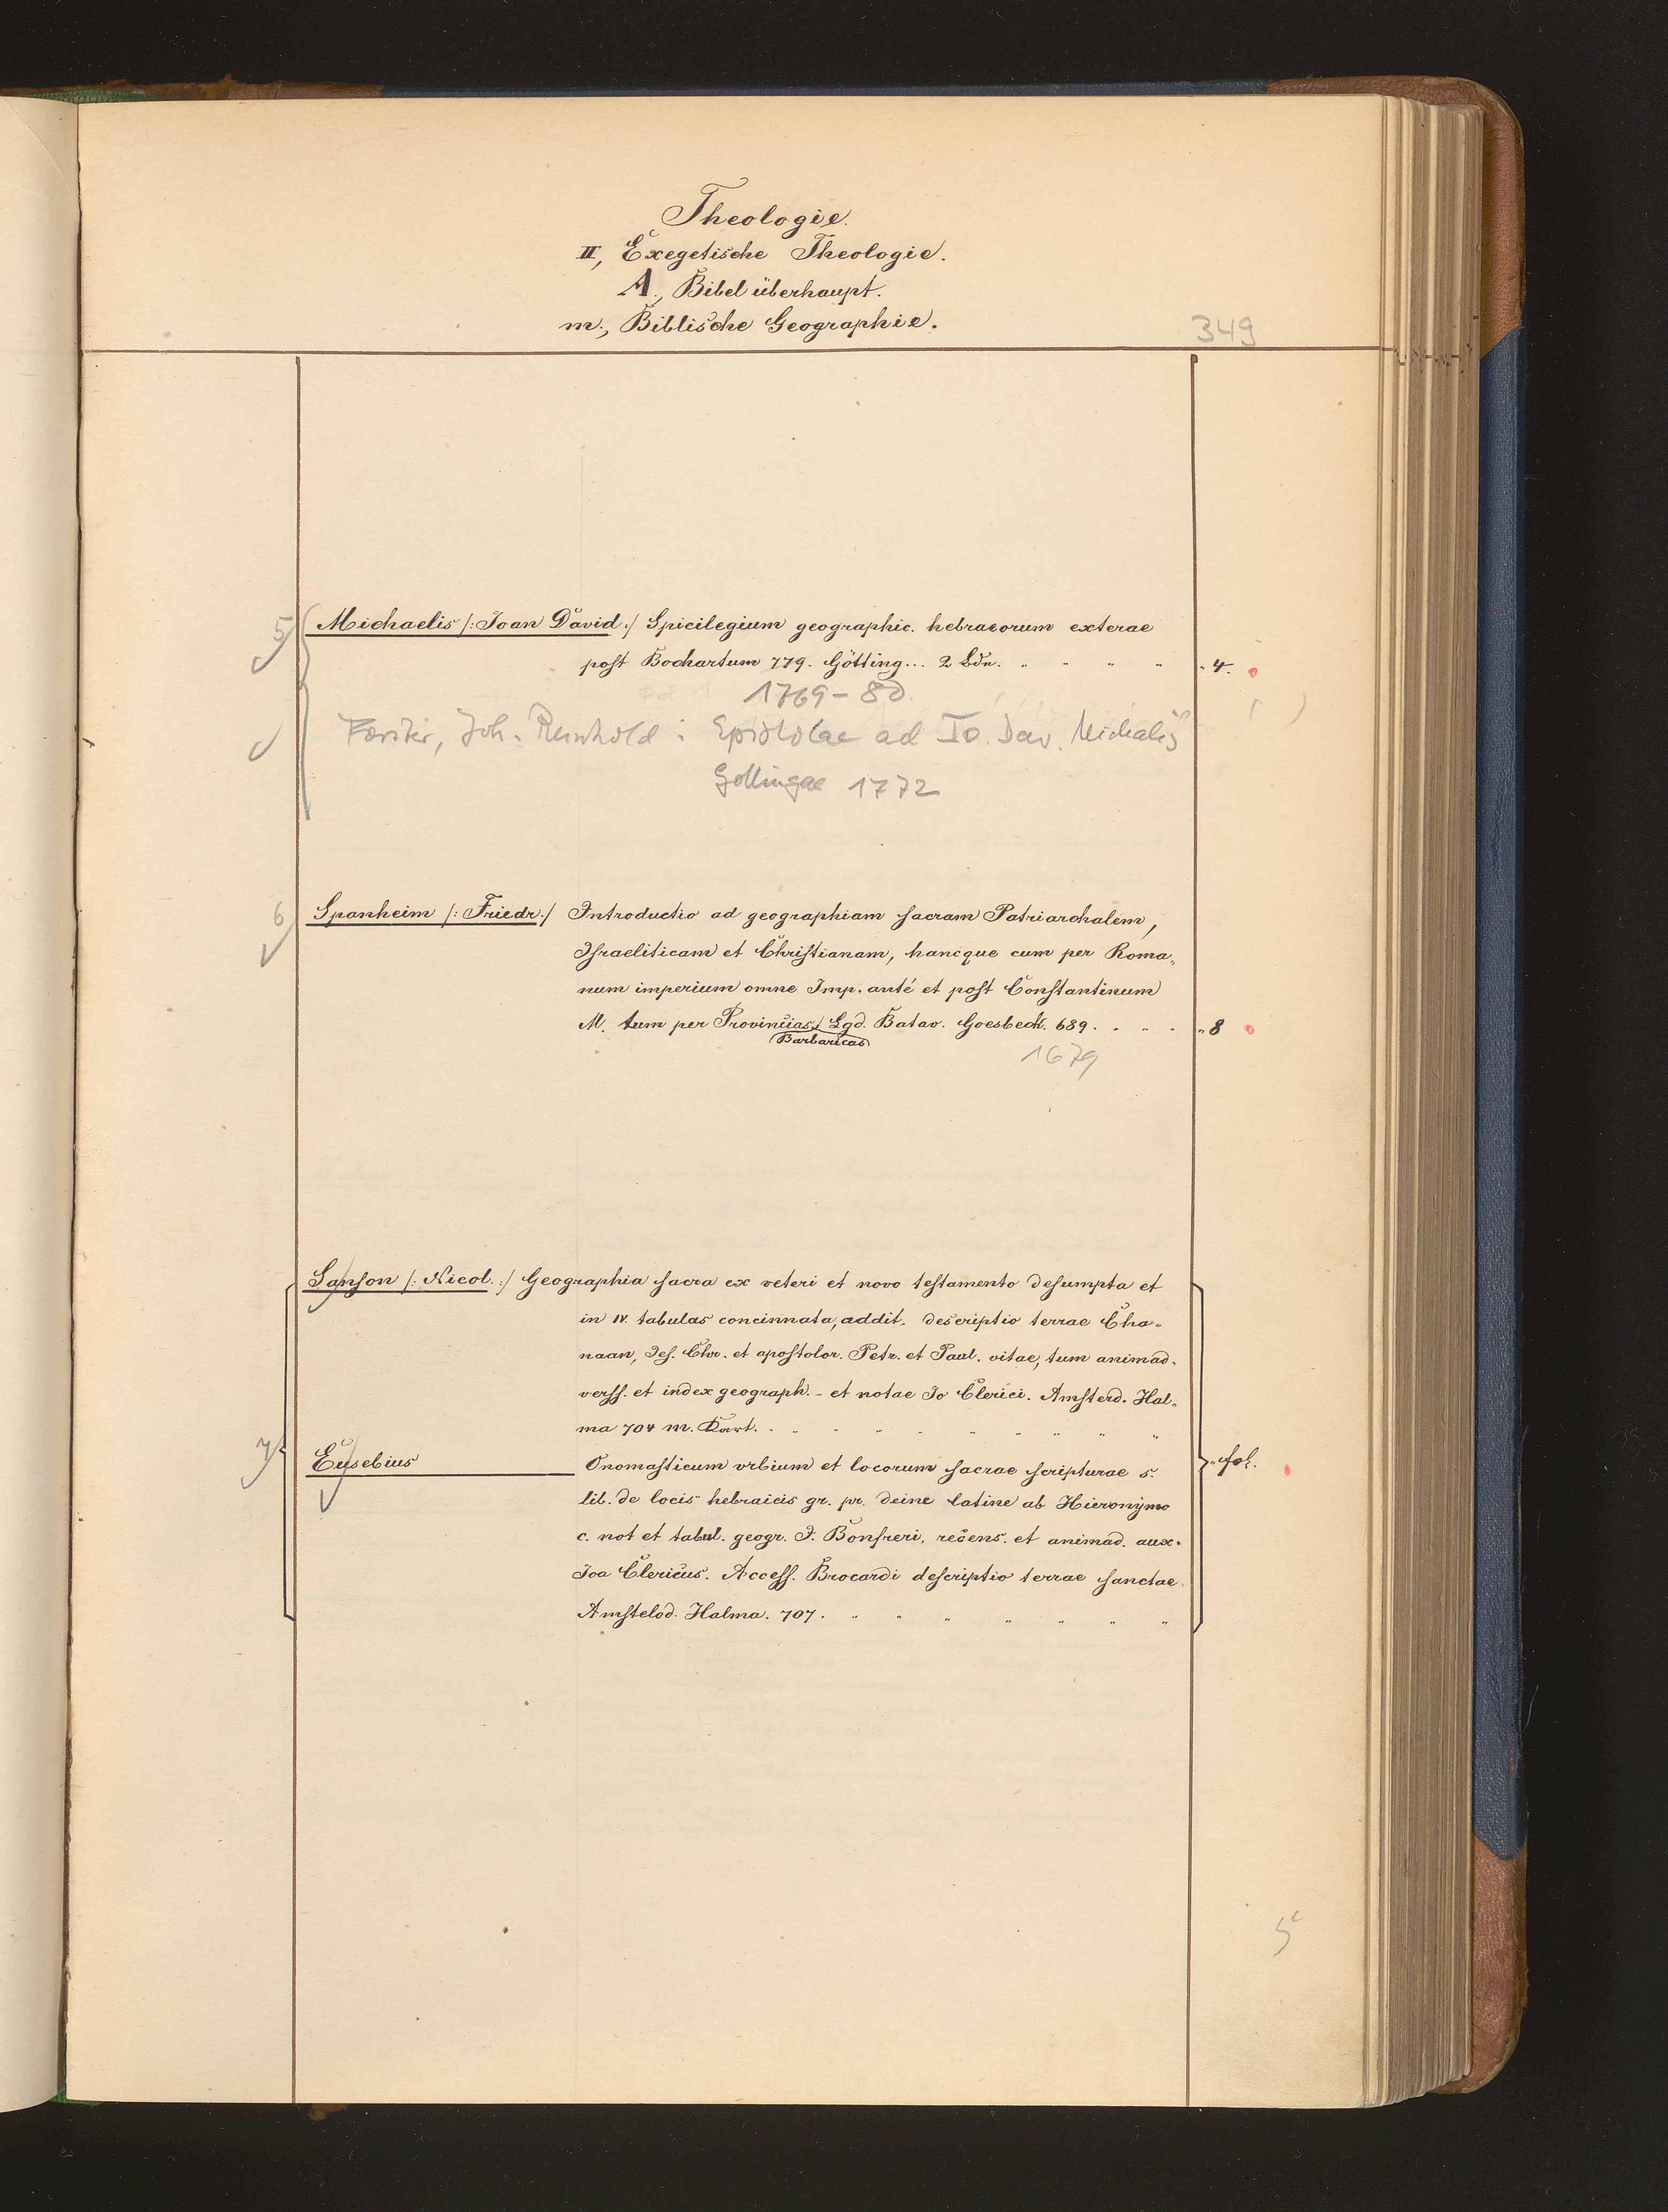 Theologie.
II, Exegetische Theologie.
A., Bibel überhaupt.
m., Biblische Geographie.
349
5 Michaelis /: Joan David :/ Spicilegium geographic. hebraeorum exterae
post Bochartum 779. Götting... 2 Bdn. " " " " " 4.
1769-80
Forster, Joh. Reinhold: Epistolae ad Io. Dav. Michaelis
Gottingae 1772
6 Spanheim /: Friedr :/ Introductio ad geographiam sacram Patriarchalem,
Israeliticam et Christianam, hancque cum per Roma„
num imperium omne Imp. anté et post Constantinum
M. tum per Provincias Lgd. Batav. Goesbeck. 689. . " . " 8
Barbaricas
1679
Sanson /: Nicol. :/ Geographia sacra ex veteri et novo testamento desumpta et
in IV. tabulas concinnata, addit. descriptio terrae Cha„
naan, Jes. Chr. et apostolor. Petr. et Paul. vitae, tum animad„
verss. et index geograph. - et notae Jo Clerici. Amsterd. Hal„
ma 704 m. Kart. " " " " " " " " "
7 Eusebius Onomasticum urbium et locorum sacrae scripturae s. " fol.
lib. de locis hebraicis gr. pr. deine latine ab Hieronymo
c. not et tabul. geogr. J. Bonfreri, recens. et animad. aux.
Joa Clericus. Access. Brocardi descriptio terrae sanctae.
Amstelod. Halma. 707. " " " " " " "